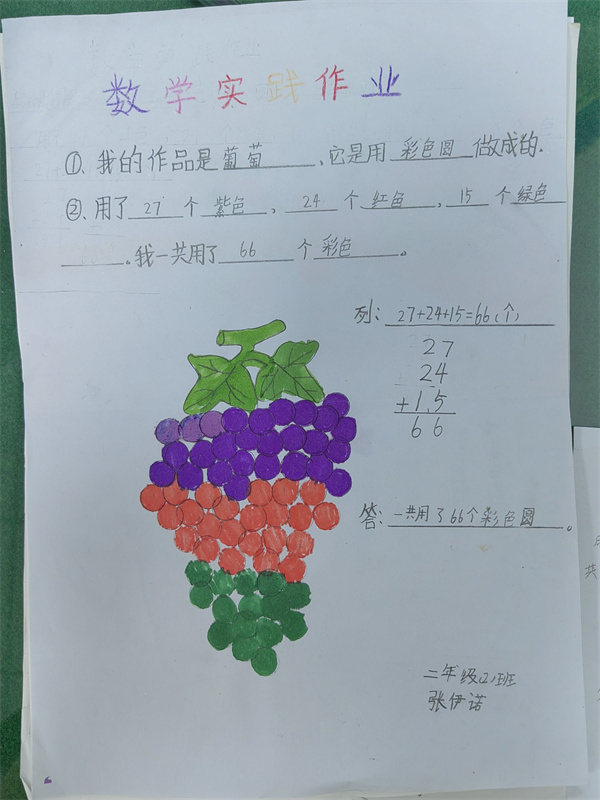 数学实践作业
①、我的作品是葡萄、它是用彩色圆做成的.
②、用了27个紫色,24个红色,15个绿色
。我一共用了66个彩色。
列:27+24+15=66(个)
27
24
+15
66
答:一共用了66个彩色圆。
二年级(2)班
张伊诺
共